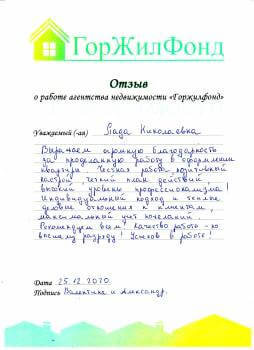 ГорЖилФонд
Отзыв
о работе агентства недвижимости «Горжилфонд»
Уважаемый (-ая) Рада Николаевна
Выражаем огромную благодарность
за проделанную работу в оформлении
квартиры. Честная работа, позитивный
настрой, четкий план действий,
высокий уровень профессионализма!
Индивидуальный подход и теплое
деловое отношение к клиентам,
максимальный учет пожеланий.
Рекомендуем всем! Качество работы - по
высшему разряду! Успехов в работе!
Дата 25.12.2020
Подпись Валентина и Александр.